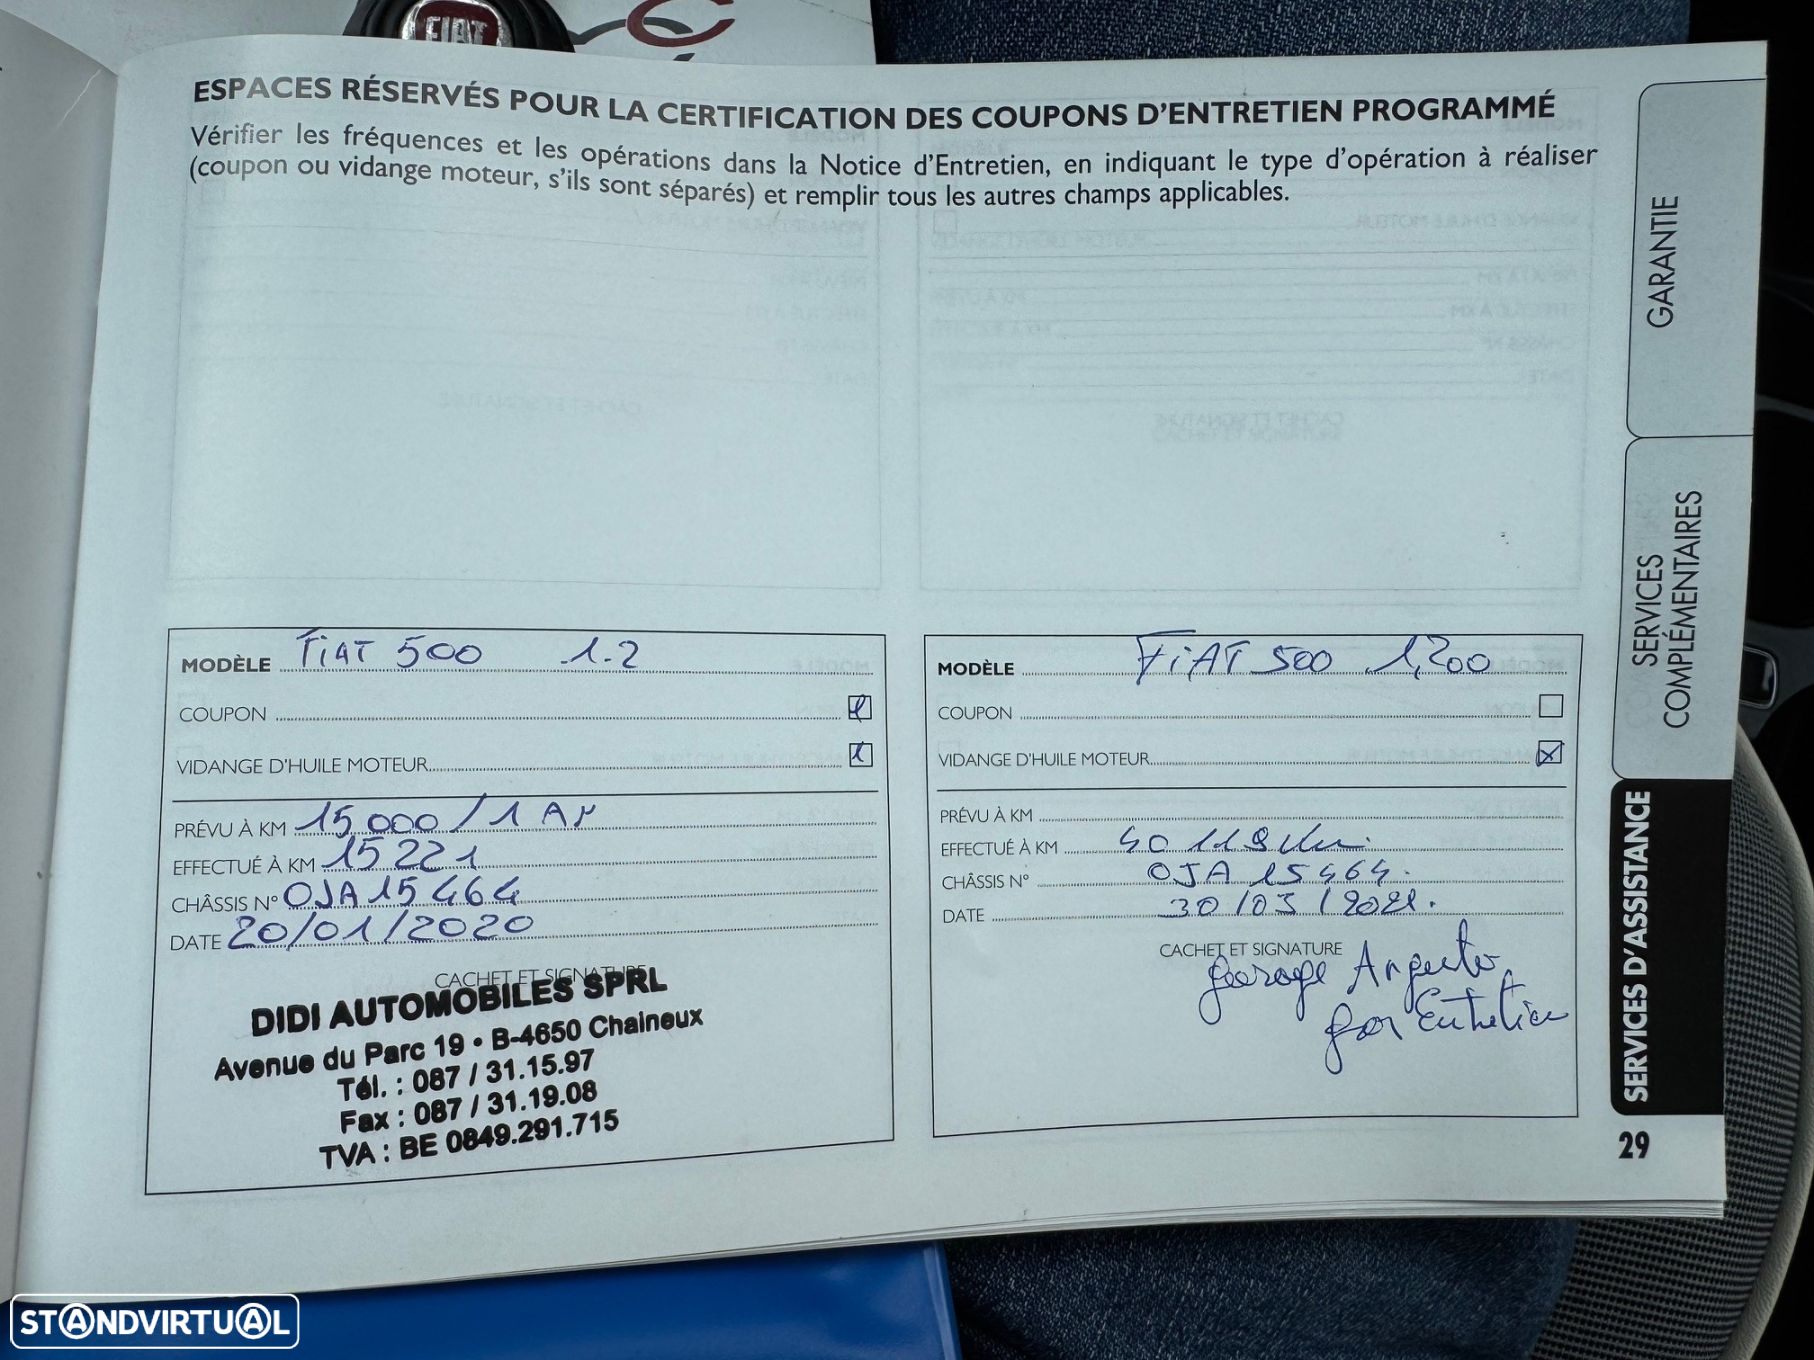 FIAT
ESPACES RÉSERVÉS POUR LA CERTIFICATION DES COUPONS D'ENTRETIEN PROGRAMMÉ
Vérifier les fréquences et les opérations dans la Notice d'Entretien, en indiquant le type d'opération à réaliser
(coupon ou vidange moteur, s'ils sont séparés) et remplir tous les autres champs applicables.
MODÈLE FIAT 500 1.2
COUPON
VIDANGE D'HUILE MOTEUR
PRÉVU À KM 15 000 / 1 AN
EFFECTUÉ À KM 15 221
CHÂSSIS N° OJA15464
DATE 20/01/2020
CACHET ET SIGNATURE
DIDI AUTOMOBILES SPRL
Avenue du Parc 19 • B-4650 Chaineux
Tél. : 087 / 31.15.97
Fax : 087 / 31.19.08
TVA : BE 0849.291.715
MODÈLE FIAT 500 1,200
COUPON
VIDANGE D'HUILE MOTEUR
PRÉVU À KM
EFFECTUÉ À KM 40 119 km
CHÂSSIS N° OJA 15464.
DATE 30/03/2021.
CACHET ET SIGNATURE
Garage
Entretien
GARANTIE
SERVICES
COMPLÉMENTAIRES
SERVICES D'ASSISTANCE
29
STANDVIRTUAL